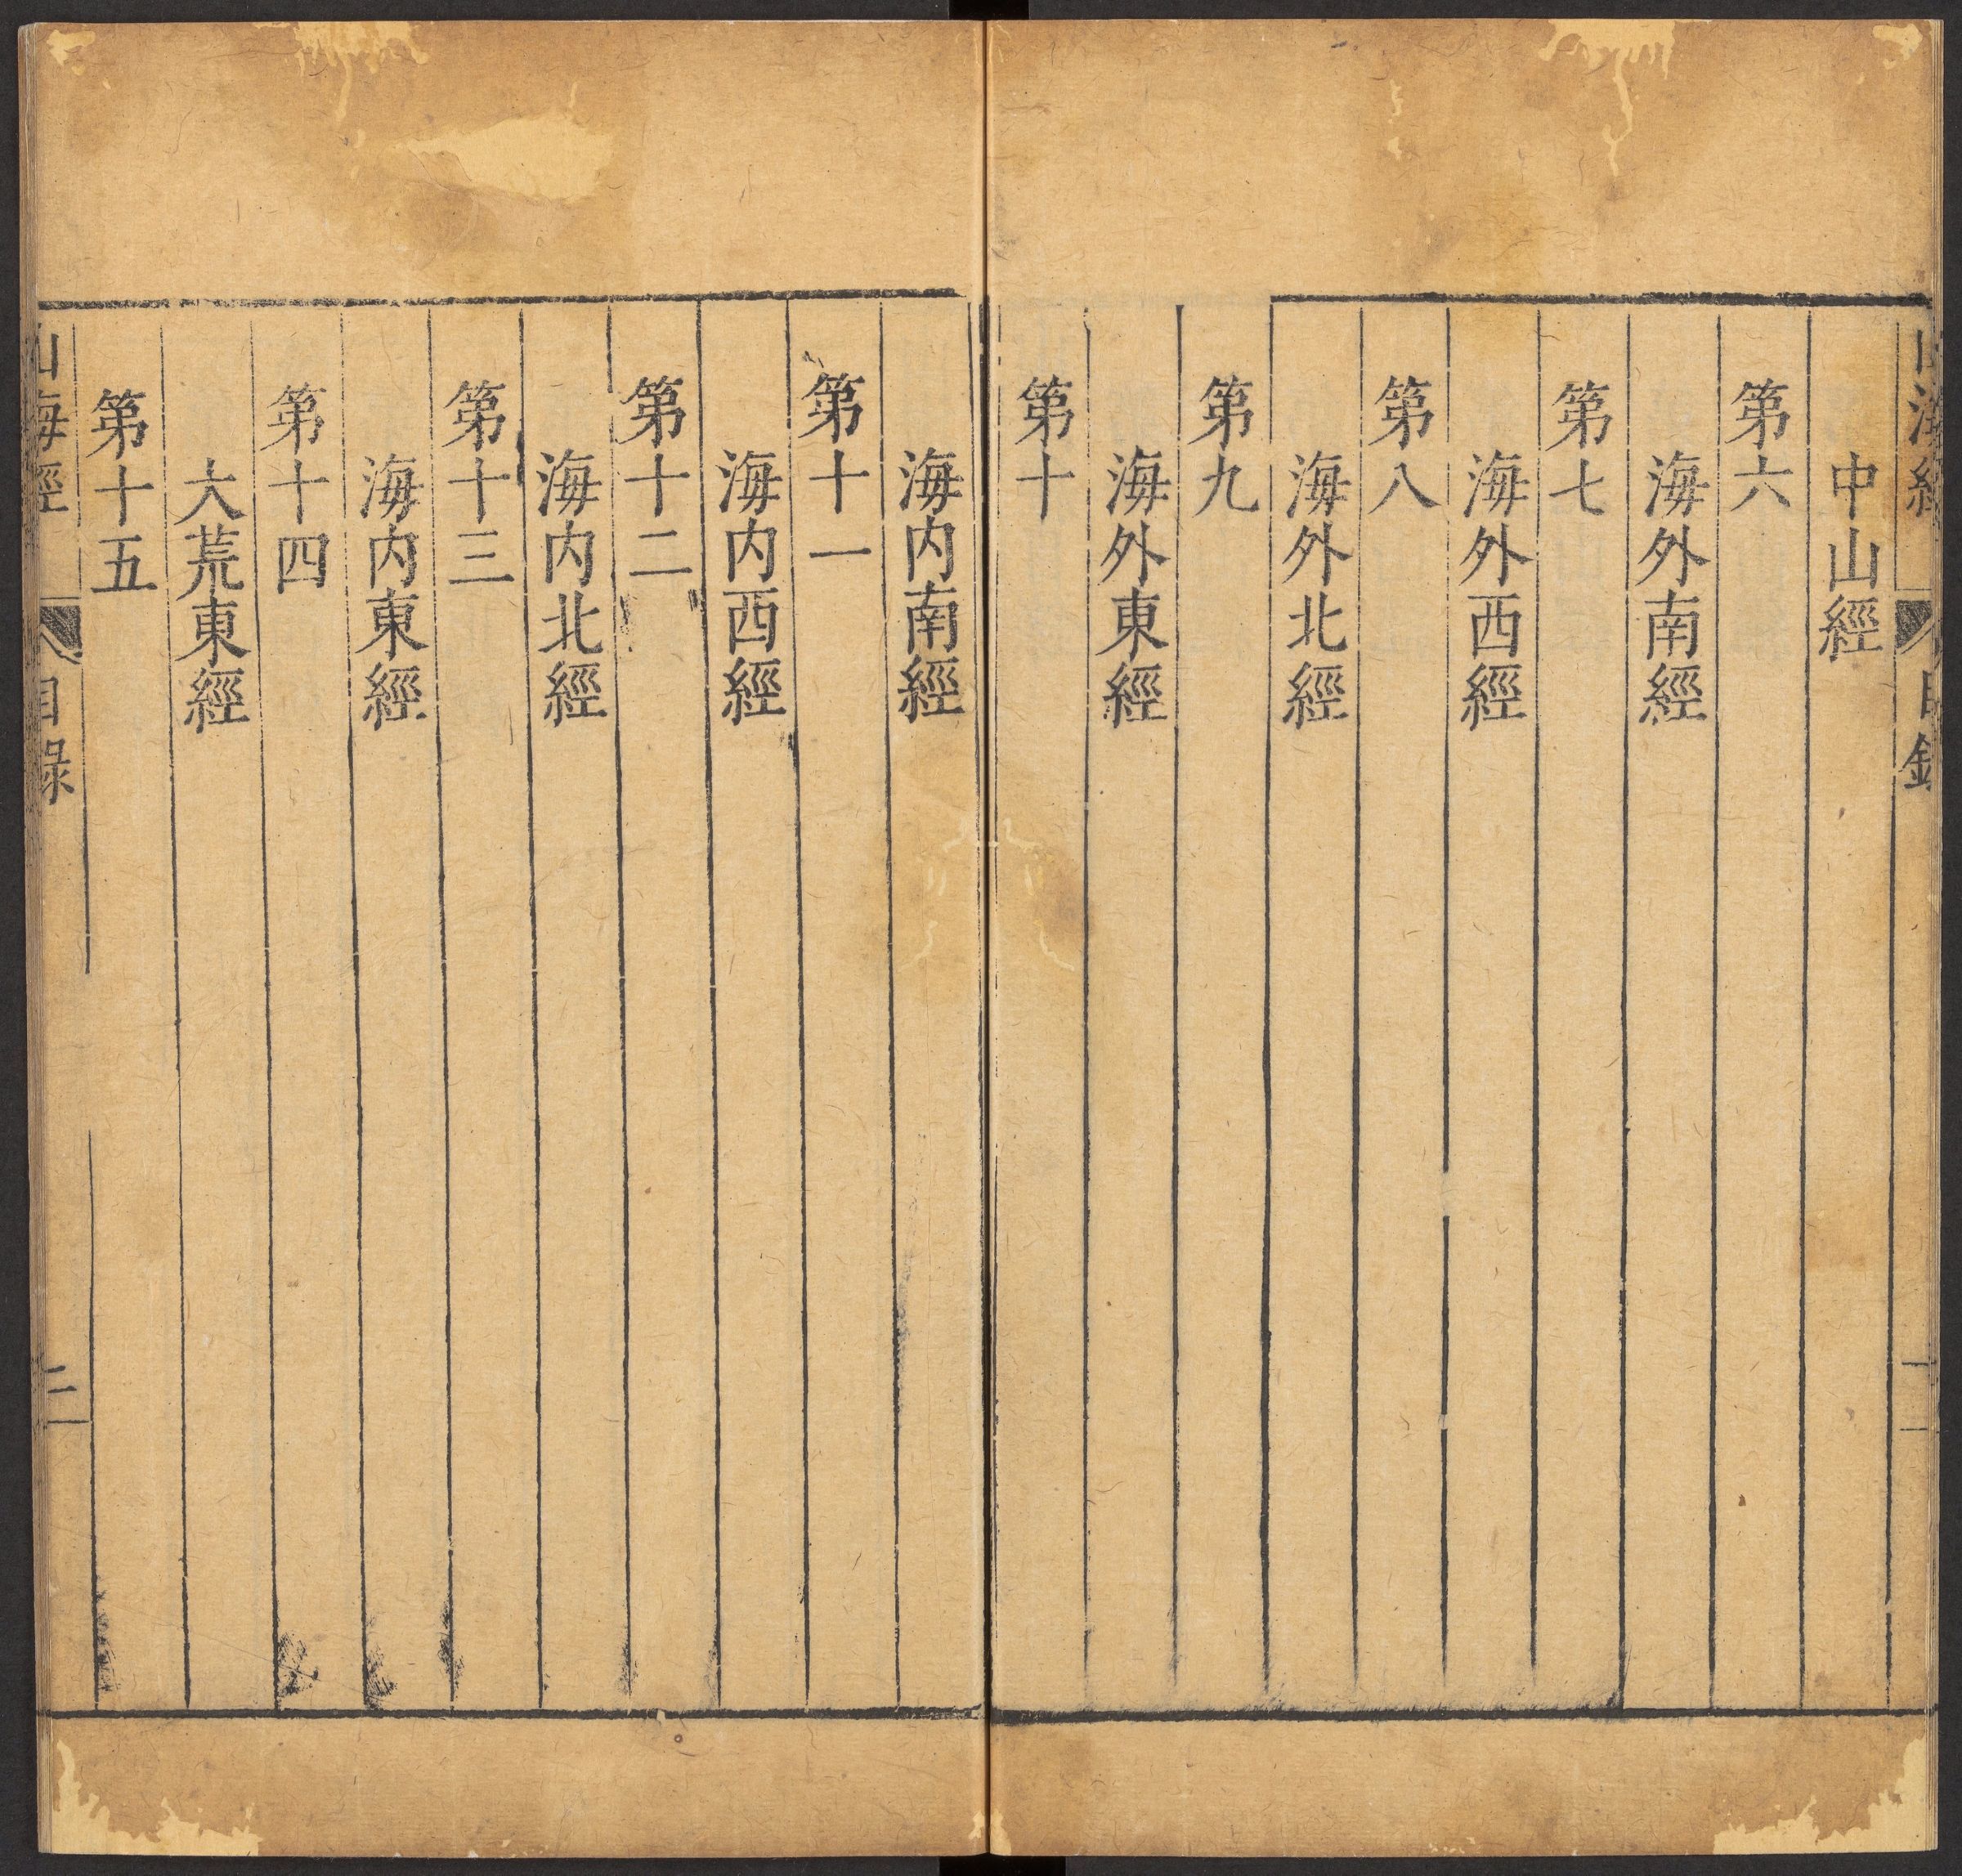 中山經
第六
海外南經
第七
海外西經
第八
海外北經
第九
海外東經
第十
海内南經
第十一
海内西經
第十二
海内北經
第十三
海内東經
第十四
大荒東經
第十五
山海經
目錄
三